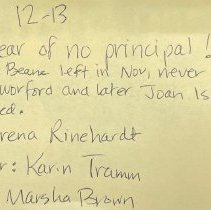 12-13
ear of no principal!
Beane left in Nov, never
worford and later Joan Is
ed.
rena Rinehardt
r: Karin Tramm
Marsha Brown